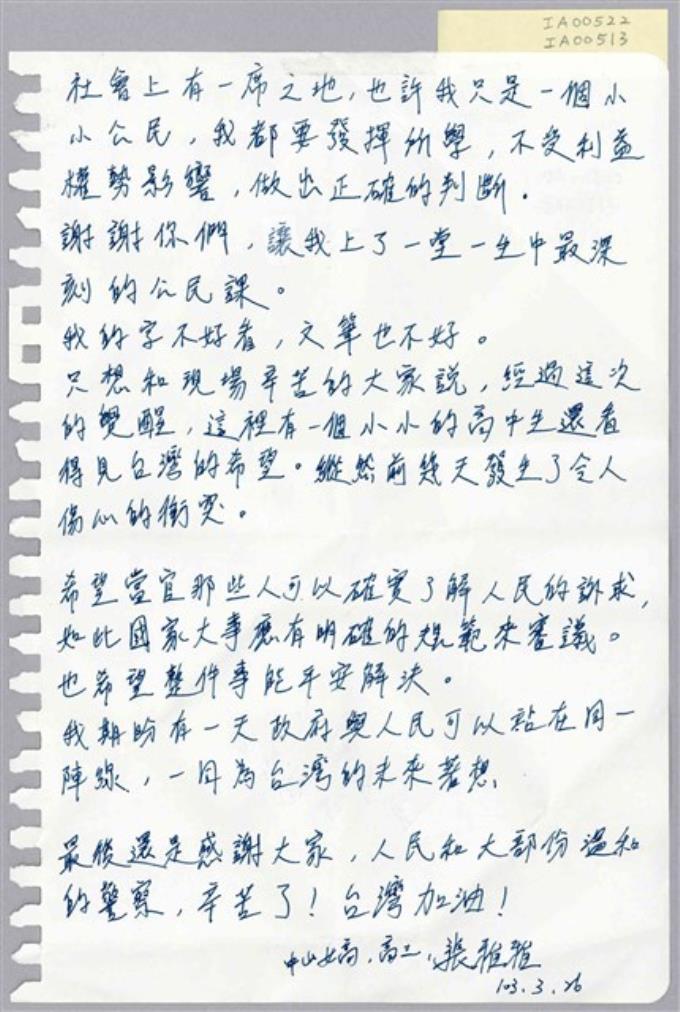 IA00522
IA00513
社會上有一席之地,也許我只是一個小
小公民,我都要發揮所學,不受利益
權勢影響,做出正確的判斷.
謝謝你們,讓我上了一堂一生中最深
刻的公民課。
我的字不好看,文筆也不好。
只想和現場辛苦的大家說,經過這次
的覺醒,這裡有一個小小的高中生還看
得見台灣的希望。縱然前幾天發生了令人
傷心的衝突。
希望當官那些人可以確實了解人民的訴求,
如此國家大事應有明確的規範來審議。
也希望整件事能平安解決。
我期盼有一天政府與人民可以站在同一
陣線,一同為台灣的未來著想、
最後還是感謝大家,人民和大部份溫和
的警察,辛苦了!台灣加油!
中山女高.高二、張雅雅
103.3.26